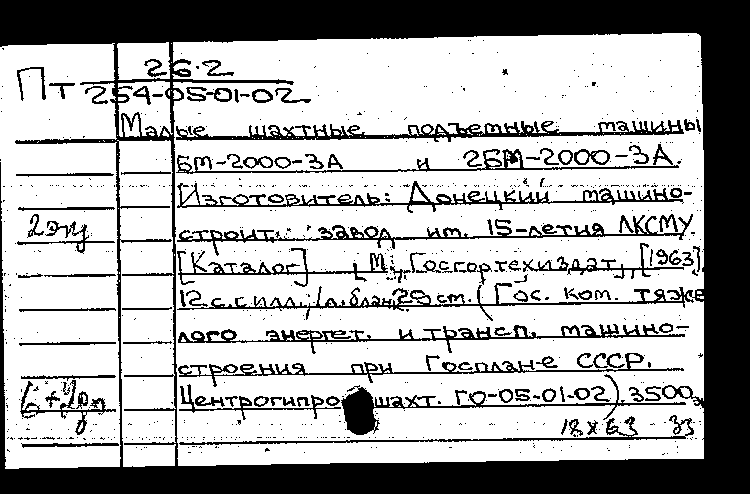 26.2
Пт 254-05-01-02.
Малые шахтные подъемные машины
БМ-2000-3А и 2БМ-2000-3А.
Изготовитель: Донецкий машино-
2 экз строит. завод им. 15-летия ЛКСМУ.
[Каталог] [М., Госгортехиздат], [1963].
12 с. с илл., 1 л. бланк, 29 см. (Гос. ком. тяже
лого энергет. и трансп. машино-
строения при Госплане СССР.
Центрогипрошахт. ГО-05-01-02). 3500 э